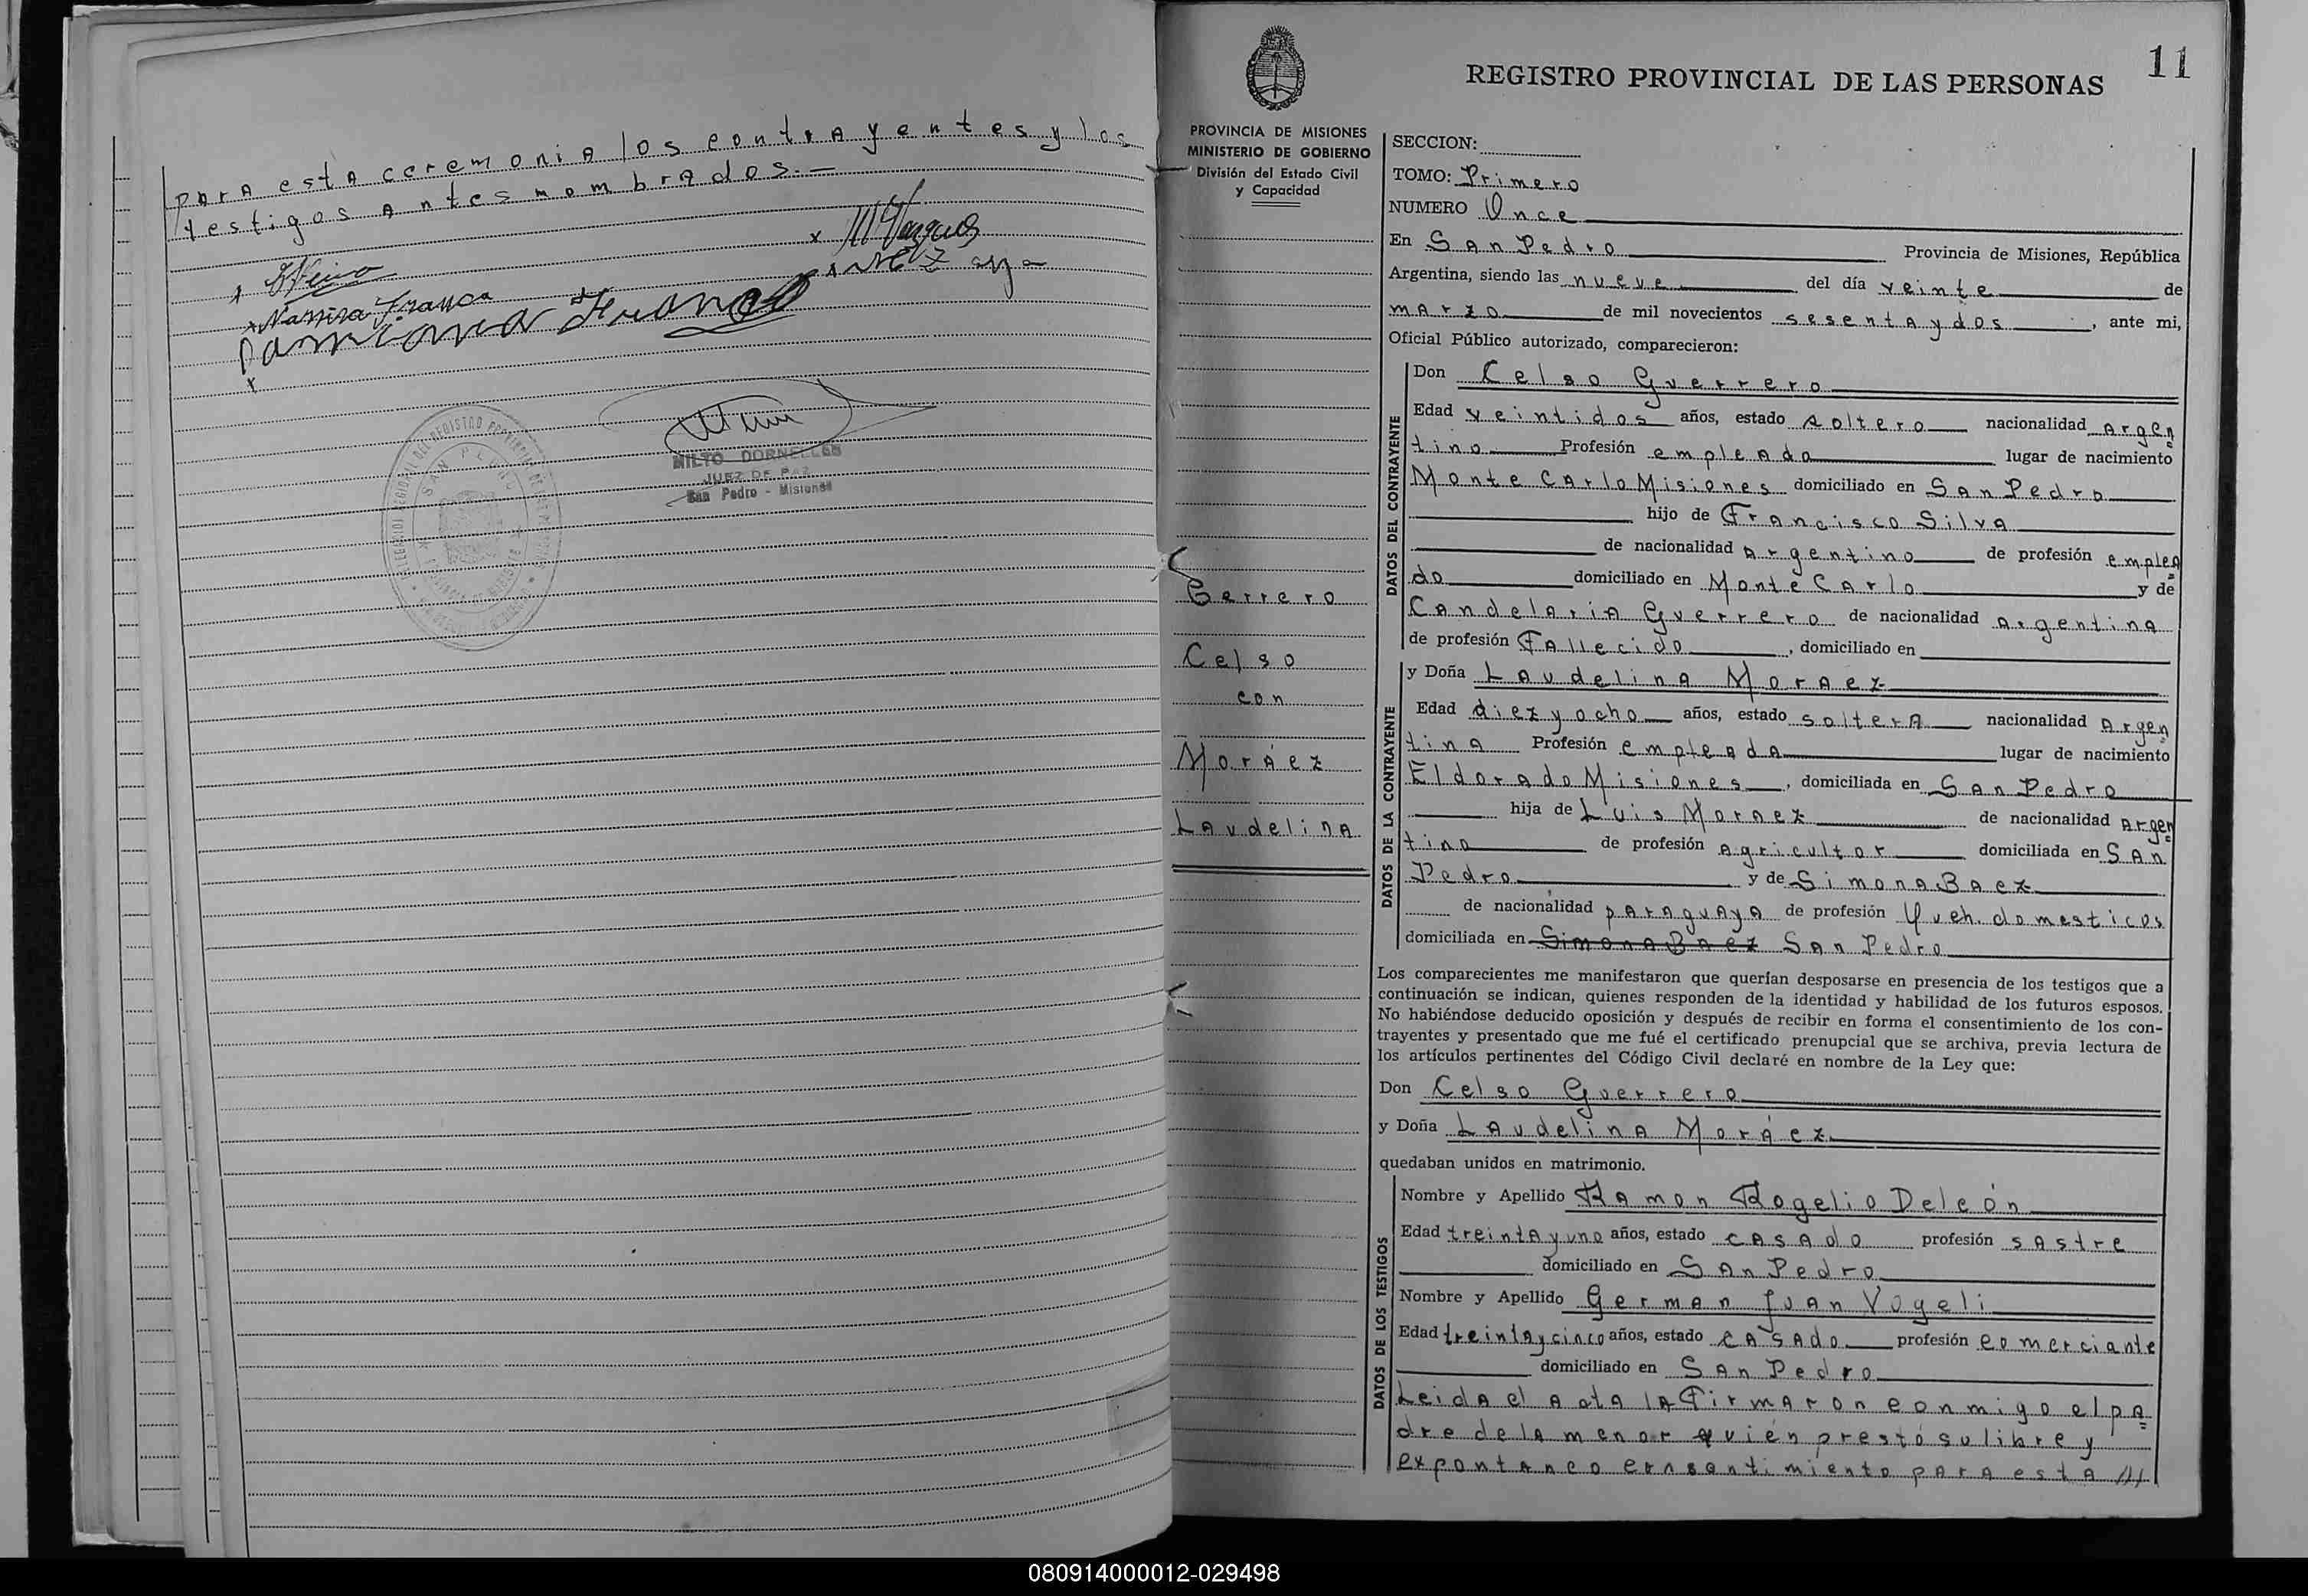 para esta ceremonia los contrayentes y los
testigos antes nombrados.—
Narsisa Franca
Franco
MILTO DORNELLES
JUEZ DE PAZ
San Pedro - Misiones
SAN PEDRO
11
REGISTRO PROVINCIAL DE LAS PERSONAS
PROVINCIA DE MISIONES
MINISTERIO DE GOBIERNO
División del Estado Civil
y Capacidad
Gerrero
Celso
con
Moráez
Laudelina
SECCION:
TOMO: Primero
NUMERO Once
En San Pedro Provincia de Misiones, República
Argentina, siendo las nueve del día veinte de
marzo de mil novecientos sesenta y dos, ante mi,
Oficial Público autorizado, comparecieron:
DATOS DEL CONTRAYENTE
Don Celso Guerrero
Edad veintidos años, estado soltero nacionalidad Argen=
tino Profesión empleado lugar de nacimiento
Monte Carlo Misiones domiciliado en San Pedro
hijo de Francisco Silva
de nacionalidad Argentino de profesión emplea=
do domiciliado en Monte Carlo y de
Candelaria Guerrero de nacionalidad Argentina
de profesión Fallecido, domiciliado en
DATOS DE LA CONTRAYENTE
y Doña Laudelina Moraez
Edad diez y ocho años, estado soltera nacionalidad Argen=
tina Profesión empleada lugar de nacimiento
Eldorado Misiones, domiciliada en San Pedro
hija de Luis Moraez de nacionalidad Argen=
tino de profesión Agricultor domiciliada en San
Pedro y de Simona Baez
de nacionalidad paraguaya de profesión Queh. domesticos
domiciliada en Simona Baez San Pedro
Los comparecientes me manifestaron que querían desposarse en presencia de los testigos que a
continuación se indican, quienes responden de la identidad y habilidad de los futuros esposos.
No habiéndose deducido oposición y después de recibir en forma el consentimiento de los con-
trayentes y presentado que me fué el certificado prenupcial que se archiva, previa lectura de
los artículos pertinentes del Código Civil declaré en nombre de la Ley que:
Don Celso Guerrero
y Doña Laudelina Moráez
quedaban unidos en matrimonio.
DATOS DE LOS TESTIGOS
Nombre y Apellido Ramon Rogelio Deleón
Edad treinta y uno años, estado casado profesión sastre
domiciliado en San Pedro
Nombre y Apellido German Juan Vogeli
Edad treinta y cinco años, estado casado profesión comerciante
domiciliado en San Pedro
Leida el acta la Firmaron conmigo el pa=
dre de la menor quién prestó su libre y
expontaneo consentimiento para esta ///
080914000012-029498